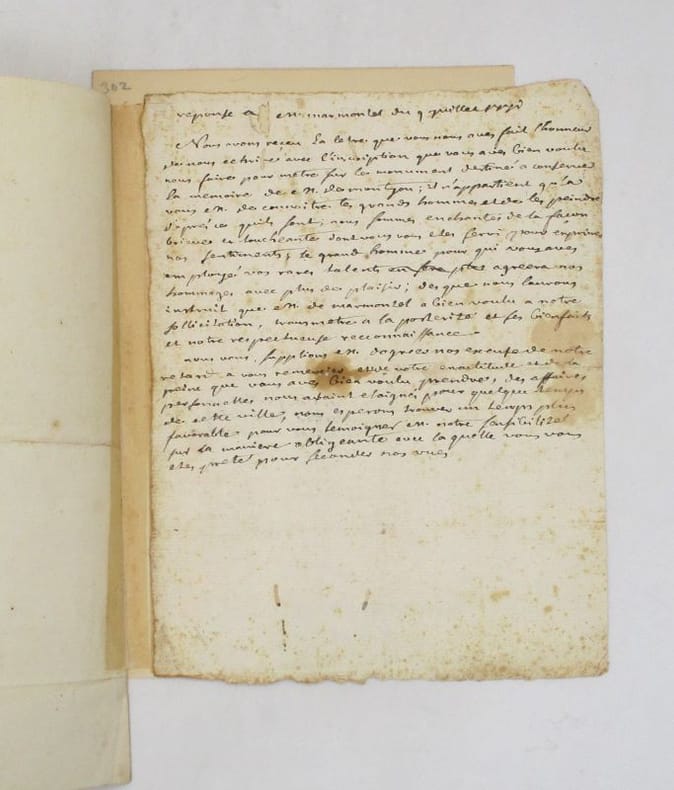 302
reponse a m. marmontel du 9 juillet
Nous avons reçeu la letre que vous nous avés fait l'honneur
de nous ecrire avec l'inscription que vous avés bien voulu
nous faire pour metre sur les monument destiné a conserver
la memoire de m. de montyon; il n'appartient qu'a
vous m. de connoitre les grands hommes et de les peindre
d'après ce qu'ils sont; nous sommes enchantés de la façon
brieve et touchante dont vous vous etes servi pour exprimer
nos sentiments; le grand homme pour qui vous avés
employé vos rares talents agreera nos
hommages avec plus de plaisir; des que nous l'aurons
instruit que m. de marmontel a bien voulu a notre
sollicitation, transmetre a la posterité et ses bienfaits
et notre respectueuse reconnaissance.
nous vous supplions m. d'agreer nos excuse de notre
retard a vous remercier de votre exactitude et de la
peine que vous avés bien voulu prendre, des affaires
personnelles nous ayant eloignés pour quelque temps
de cette ville, nous esperons trouver un temps plus
favorable pour vous temoigner m. notre sensibilité
sur la maniere obligeante avec laquelle vous vous
etes preté pour seconder nos vues